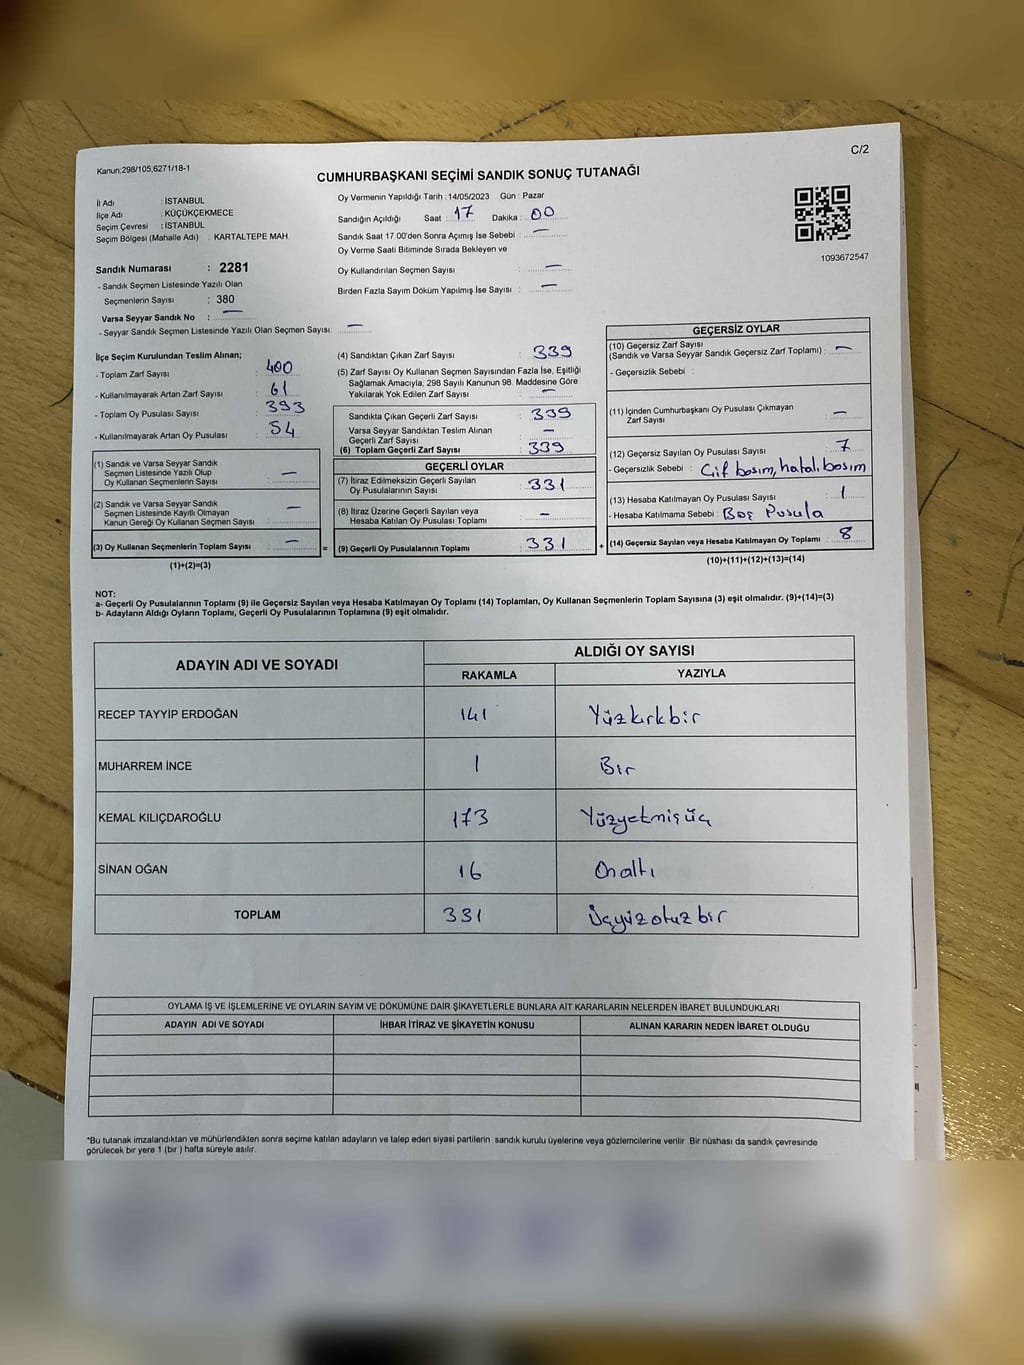 Kanun:298/105,6271/18-1
C/2
CUMHURBAŞKANI SEÇİMİ SANDIK SONUÇ TUTANAĞI
İl Adı : İSTANBUL
İlçe Adı : KÜÇÜKÇEKMECE
Seçim Çevresi : İSTANBUL
Seçim Bölgesi (Mahalle Adı) : KARTALTEPE MAH.
Oy Vermenin Yapıldığı Tarih : 14/05/2023 Gün : Pazar
Sandığın Açıldığı Saat : 17 Dakika : 00
Sandık Saat 17.00'den Sonra Açımış İse Sebebi : —
Oy Verme Saati Bitiminde Sırada Bekleyen ve
Oy Kullandırılan Seçmen Sayısı : —
Birden Fazla Sayım Döküm Yapılmış İse Sayısı : —
1093672547
Sandık Numarası : 2281
- Sandık Seçmen Listesinde Yazılı Olan
Seçmenlerin Sayısı : 380
Varsa Seyyar Sandık No : —
- Seyyar Sandık Seçmen Listesinde Yazılı Olan Seçmen Sayısı: —
İlçe Seçim Kurulundan Teslim Alınan;
- Toplam Zarf Sayısı : 400
- Kullanılmayarak Artan Zarf Sayısı : 61
- Toplam Oy Pusulası Sayısı : 393
- Kullanılmayarak Artan Oy Pusulası : 54
(1) Sandık ve Varsa Seyyar Sandık
Seçmen Listesinde Yazılı Olup
Oy Kullanan Seçmenlerin Sayısı : —
(2) Sandık ve Varsa Seyyar Sandık
Seçmen Listesinde Kayıtlı Olmayan
Kanun Gereği Oy Kullanan Seçmen Sayısı : —
(3) Oy Kullanan Seçmenlerin Toplam Sayısı : —
(1)+(2)=(3)
=
(4) Sandıktan Çıkan Zarf Sayısı : 339
(5) Zarf Sayısı Oy Kullanan Seçmen Sayısından Fazla İse, Eşitliği
Sağlamak Amacıyla, 298 Sayılı Kanunun 98. Maddesine Göre
Yakılarak Yok Edilen Zarf Sayısı : —
Sandıkta Çıkan Geçerli Zarf Sayısı : 339
Varsa Seyyar Sandıktan Teslim Alınan
Geçerli Zarf Sayısı : —
(6) Toplam Geçerli Zarf Sayısı : 339
GEÇERLİ OYLAR
(7) İtiraz Edilmeksizin Geçerli Sayılan
Oy Pusulalarının Sayısı : 331
(8) İtiraz Üzerine Geçerli Sayılan veya
Hesaba Katılan Oy Pusulası Toplamı : —
(9) Geçerli Oy Pusulalarının Toplamı : 331
+
GEÇERSİZ OYLAR
(10) Geçersiz Zarf Sayısı
(Sandık ve Varsa Seyyar Sandık Geçersiz Zarf Toplamı) : —
- Geçersizlik Sebebi :
(11) İçinden Cumhurbaşkanı Oy Pusulası Çıkmayan
Zarf Sayısı : —
(12) Geçersiz Sayılan Oy Pusulası Sayısı : 7
- Geçersizlik Sebebi : Çif basım, hatalı basım
(13) Hesaba Katılmayan Oy Pusulası Sayısı : 1
- Hesaba Katılmama Sebebi : Boş Pusula
(14) Geçersiz Sayılan veya Hesaba Katılmayan Oy Toplamı : 8
(10)+(11)+(12)+(13)=(14)
NOT:
a- Geçerli Oy Pusulalarının Toplamı (9) ile Geçersiz Sayılan veya Hesaba Katılmayan Oy Toplamı (14) Toplamları, Oy Kullanan Seçmenlerin Toplam Sayısına (3) eşit olmalıdır. (9)+(14)=(3)
b- Adayların Aldığı Oyların Toplamı, Geçerli Oy Pusulalarının Toplamına (9) eşit olmalıdır.
ADAYIN ADI VE SOYADI
ALDIĞI OY SAYISI
RAKAMLA YAZIYLA
RECEP TAYYİP ERDOĞAN 141 Yüzkırkbir
MUHARREM İNCE 1 Bir
KEMAL KILIÇDAROĞLU 173 Yüzyetmişüç
SİNAN OĞAN 16 Onaltı
TOPLAM 331 Üçyüzotuzbir
OYLAMA İŞ VE İŞLEMLERİNE VE OYLARIN SAYIM VE DÖKÜMÜNE DAİR ŞİKAYETLERLE BUNLARA AİT KARARLARIN NELERDEN İBARET BULUNDUKLARI
ADAYIN ADI VE SOYADI İHBAR İTİRAZ VE ŞİKAYETİN KONUSU ALINAN KARARIN NEDEN İBARET OLDUĞU
*Bu tutanak imzalandıktan ve mühürlendikten sonra seçime katılan adayların ve talep eden siyasi partilerin sandık kurulu üyelerine veya gözlemcilerine verilir. Bir nüshası da sandık çevresinde
görülecek bir yere 1 (bir ) hafta süreyle asılır.